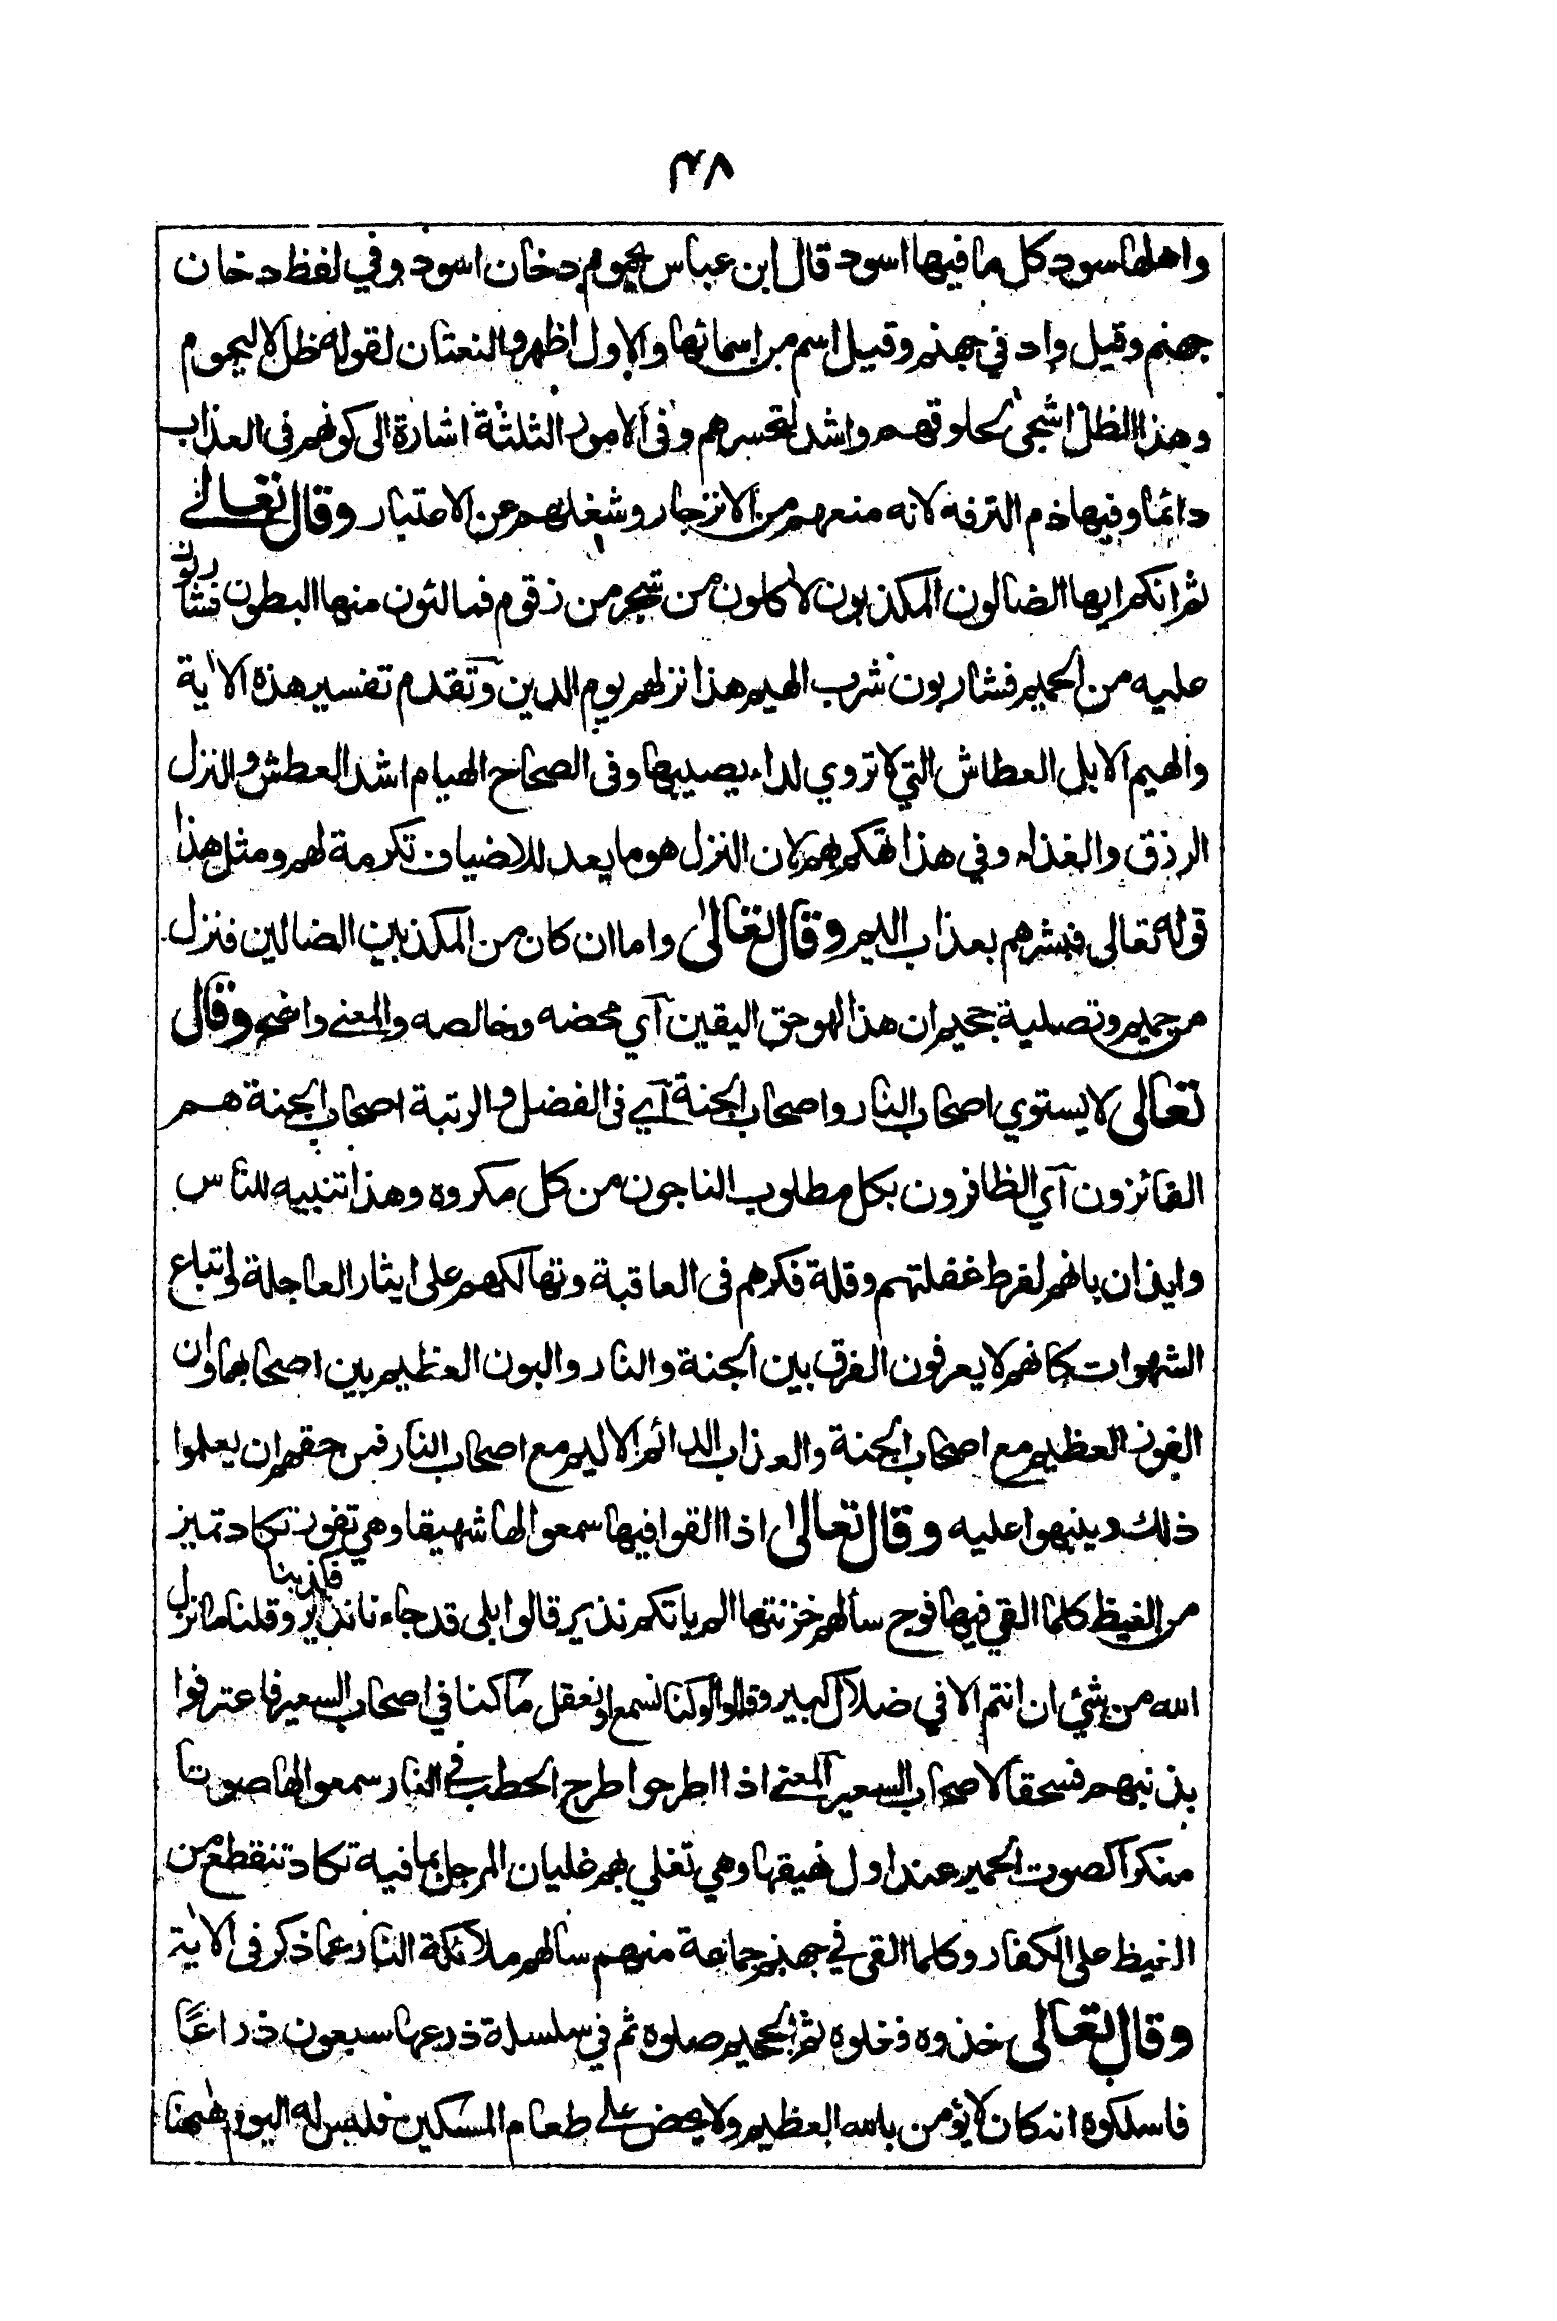 ٣٨
واهلها سود وكل ما فيها اسود قال ابن عباس يحموم دخان اسود وفي لفظ دخان
جهنم وقيل واد في جهنم وقيل اسم من اسمائها والاول اظهر والنعتان لقوله ظل لا ليحموم
وهذا الظل اشجى لحلوقهم واشد لتحسرهم وفي الامور الثلثة اشارة الى كونهم في العذاب
دائما وفيها ذم الترفه لانه منعهم من الانزجار وشغلهم عن الاعتبار وقال تعالى
ثم انكم ايها الضالون المكذبون لاكلون من شجر من زقوم فمالئون منها البطون فشاربون
عليه من الحميم فشاربون شرب الهيم هذا نزلهم يوم الدين وتقدم تفسير هذه الاية
والهيم الابل العطاش التي لا تروي لداء يصيبها وفي الصحاح الهيام اشد العطش والنزل
الرزق والغذاء وفي هذا تهكم بهم لان النزل هو ما يعد للاضياف تكرمة لهم ومثل هذا
قوله تعالى فبشرهم بعذاب اليم وقال تعالى واما ان كان من المكذبين الضالين فنزل
من حميم وتصلية جحيم ان هذا لهو حق اليقين آي محضه وخالصه والمعنى واضح وقال
تعالى لا يستوي اصحاب النار واصحاب الجنة آي في الفضل والرتبة اصحاب الجنة هم
الفائزون آي الظافرون بكل مطلوب الناجون من كل مكروه وهذا تنبيه للناس
وايذان بانهم لفرط غفلتهم وقلة فكرهم في العاقبة وتهالكهم على ايثار العاجلة واتباع
الشهوات كانهم لا يعرفون الفرق بين الجنة والنار والبون العظيم بين اصحابهما وان
الفوز العظيم مع اصحاب الجنة والعذاب الدائم الاليم مع اصحاب النار فمن حقهم ان يعلموا
ذلك وينبهوا عليه وقال تعالى اذا القوا فيها سمعوا لها شهيقا وهي تفور تكاد تميز
من الغيظ كلما القي فيها فوج سألهم خزنتها الم ياتكم نذير قالوا بلى قد جاءنا نذير فكذبنا وقلنا ما نزل
الله من شئ ان انتم الا في ضلال كبير وقالوا لو كنا نسمع او نعقل ما كنا في اصحاب السعير فاعترفوا
بذنبهم فسحقا لاصحاب السعير المعنى اذا اطرحوا طرح الحطب في النار سمعوا لها صوتا
منكرا كصوت الحمير عند اول نهيقها وهي تغلي بهم غليان المرجل بما فيه تكاد تنقطع من
الغيظ على الكفار وكلما القى في جهنم جماعة منهم سألهم ملائكة النار عما ذكر في الاية
وقال تعالى خذوه فغلوه ثم الجحيم صلوه ثم في سلسلة ذرعها سبعون ذراعًا
فاسلكوه انه كان لا يؤمن بالله العظيم ولا يحض على طعام المسكين فليس له اليوم ههنا